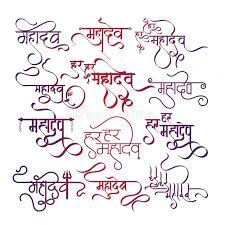 महादेव
महादेव
हर हर
महादेव
महादेव
हर हर
महादेव
महादेव
हर हर
महादेव
हर हर
महादेव
हर हर
महादेव
महादेव
महादेव
हर हर
महादेव